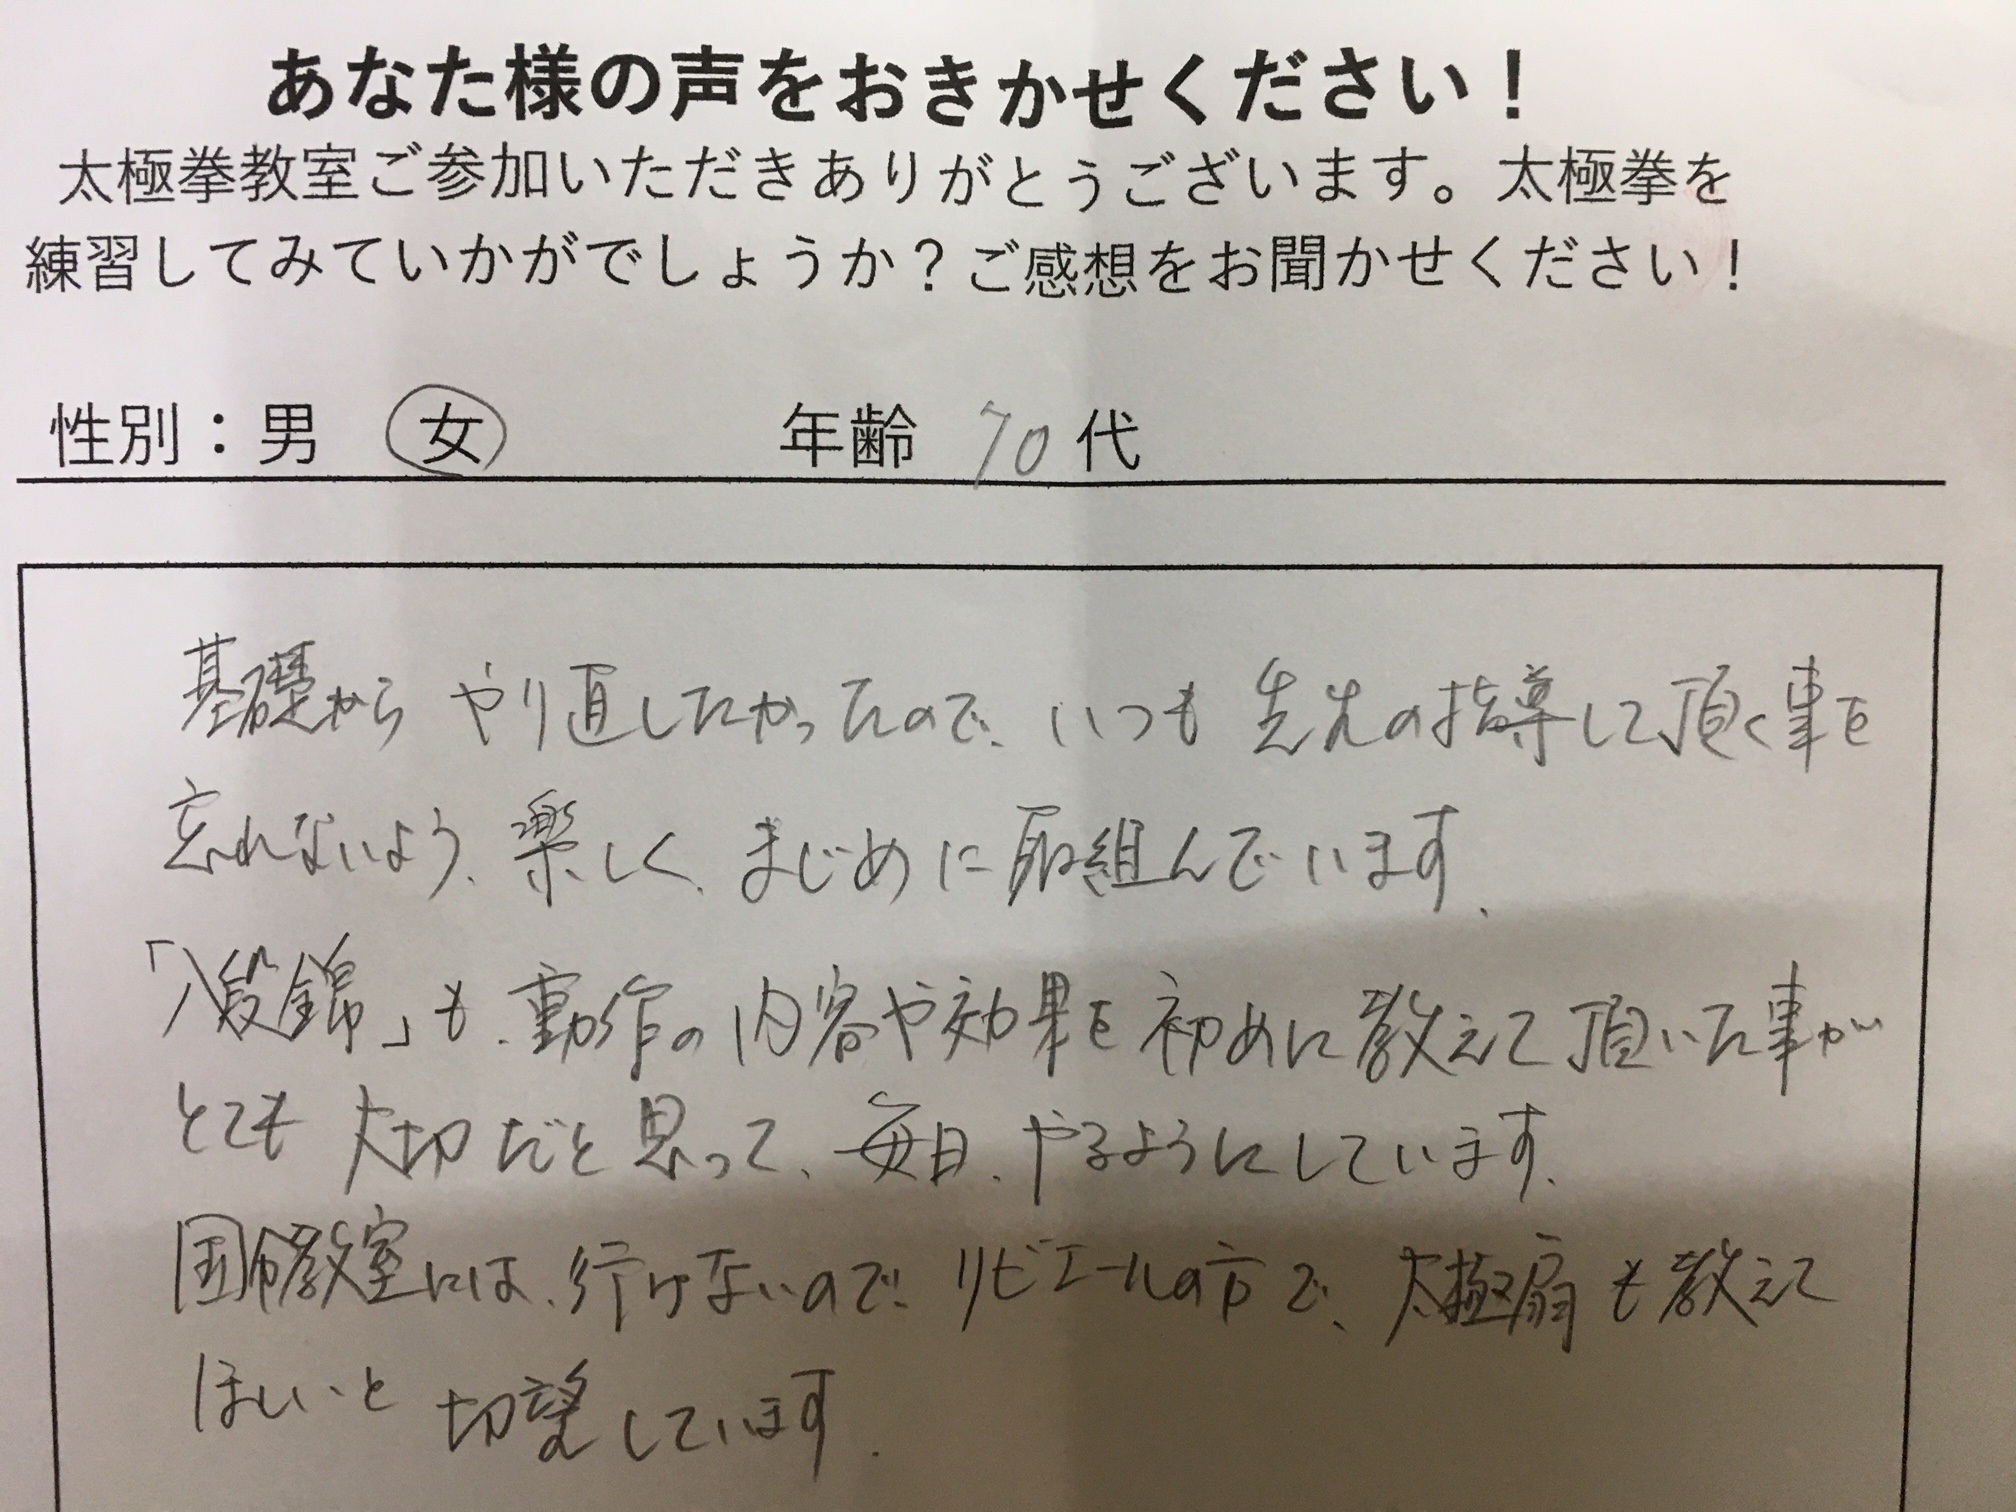 あなた様の声をおきかせください！
太極拳教室ご参加いただきありがとうございます。太極拳を
練習してみていかがでしょうか？ご感想をお聞かせください！
性別：男 女 年齢 70代
基礎から やり直したかったので、いつも 先生の指導して頂く事を
忘れないよう、楽しく、まじめに取組んでいます。
「八段錦」も、動作の内容や効果を初めに教えて頂いた事が
とても 大切だと思って、毎日、やるようにしています。
教室には、行けないので、リビエールの方で、太極扇も教えて
ほしいと 切望しています。